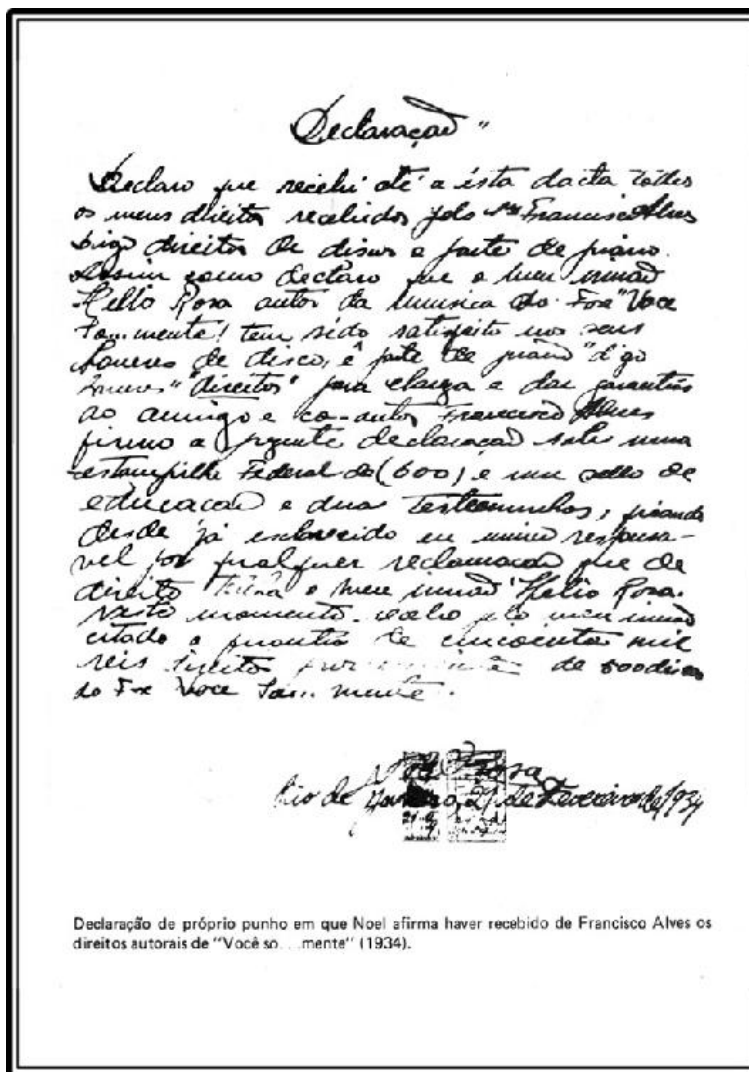 Declaração"
Declaro que recebi até a ésta dacta todos
os meus direitos recebidos pelo Snr Francisco Alves
Digo direitos de discos e parte de piano.
Assim como declaro que o meu irmaõ
Hello Rosa autor da musica do Fox "Voce
So...mente! tem sido satisfeito nos seus
de disco, é parte de piano "digo
"direitos" para clareza e dar garantias
ao amigo e co-autor Francisco Alves
firmo a prezente declaração sobre uma
estampilha Federal de (600) e um sello de
educacaõ e duas testemunhas, ficando
desde já esclarecido eu unico responsa-
vel por qualquer reclamacaõ que de
direito tenha o meu irmaõ Helio Rosa.
Neste momento recebo pelo meu irmaõ
citado a quantia de cincoenta mil
reis direitos de 500 discos
do Fox Voce So... mente.
Noel Rosa
Rio de Janeiro, 21 de Fevereiro de 1934
Declaração de próprio punho em que Noel afirma haver recebido de Francisco Alves os
direitos autorais de "Você so. . .mente" (1934).